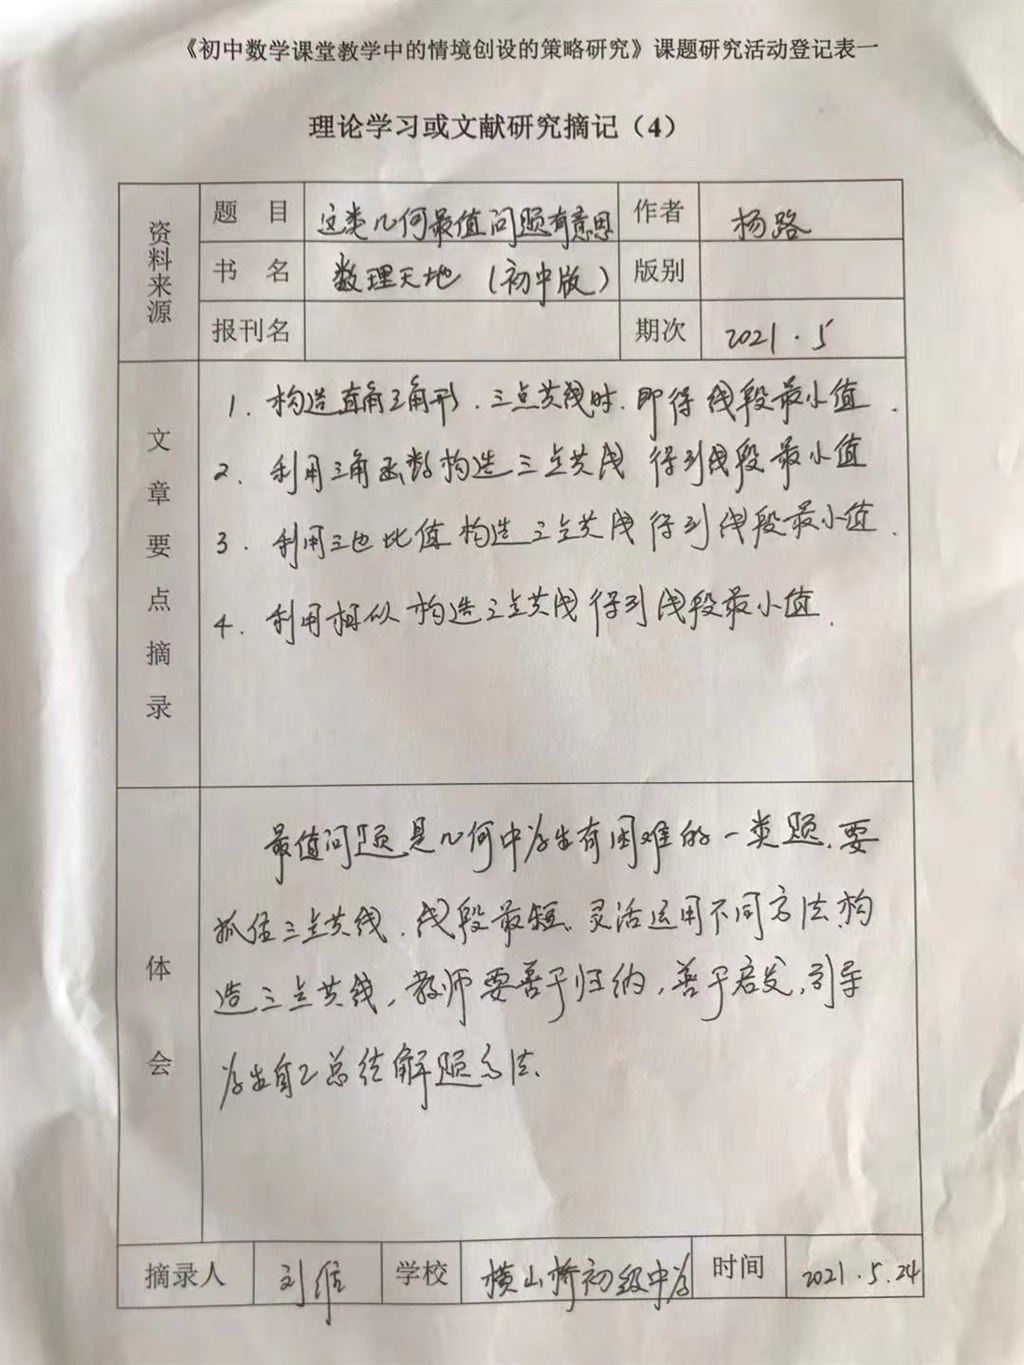 《初中数学课堂教学中的情境创设的策略研究》课题研究活动登记表一
理论学习或文献研究摘记（4）
资料来源
题 目 这类几何最值问题有意思 作者 杨路
书 名 数理天地（初中版） 版别
报刊名 期次 2021.5
文章要点摘录
1. 构造直角三角形.三点共线时.即得线段最小值.
2. 利用三角函数构造三点共线 得到线段最小值
3. 利用三边比值构造三点共线得到线段最小值.
4. 利用相似构造三点共线得到线段最小值.
体会
最值问题是几何中学生有困难的一类题.要
抓住三点共线.线段最短.灵活运用不同方法.构
造三点共线,教师要善于归纳,善于启发,引导
学生自己总结解题方法.
摘录人 刘 学校 横山桥初级中学 时间 2021.5.24